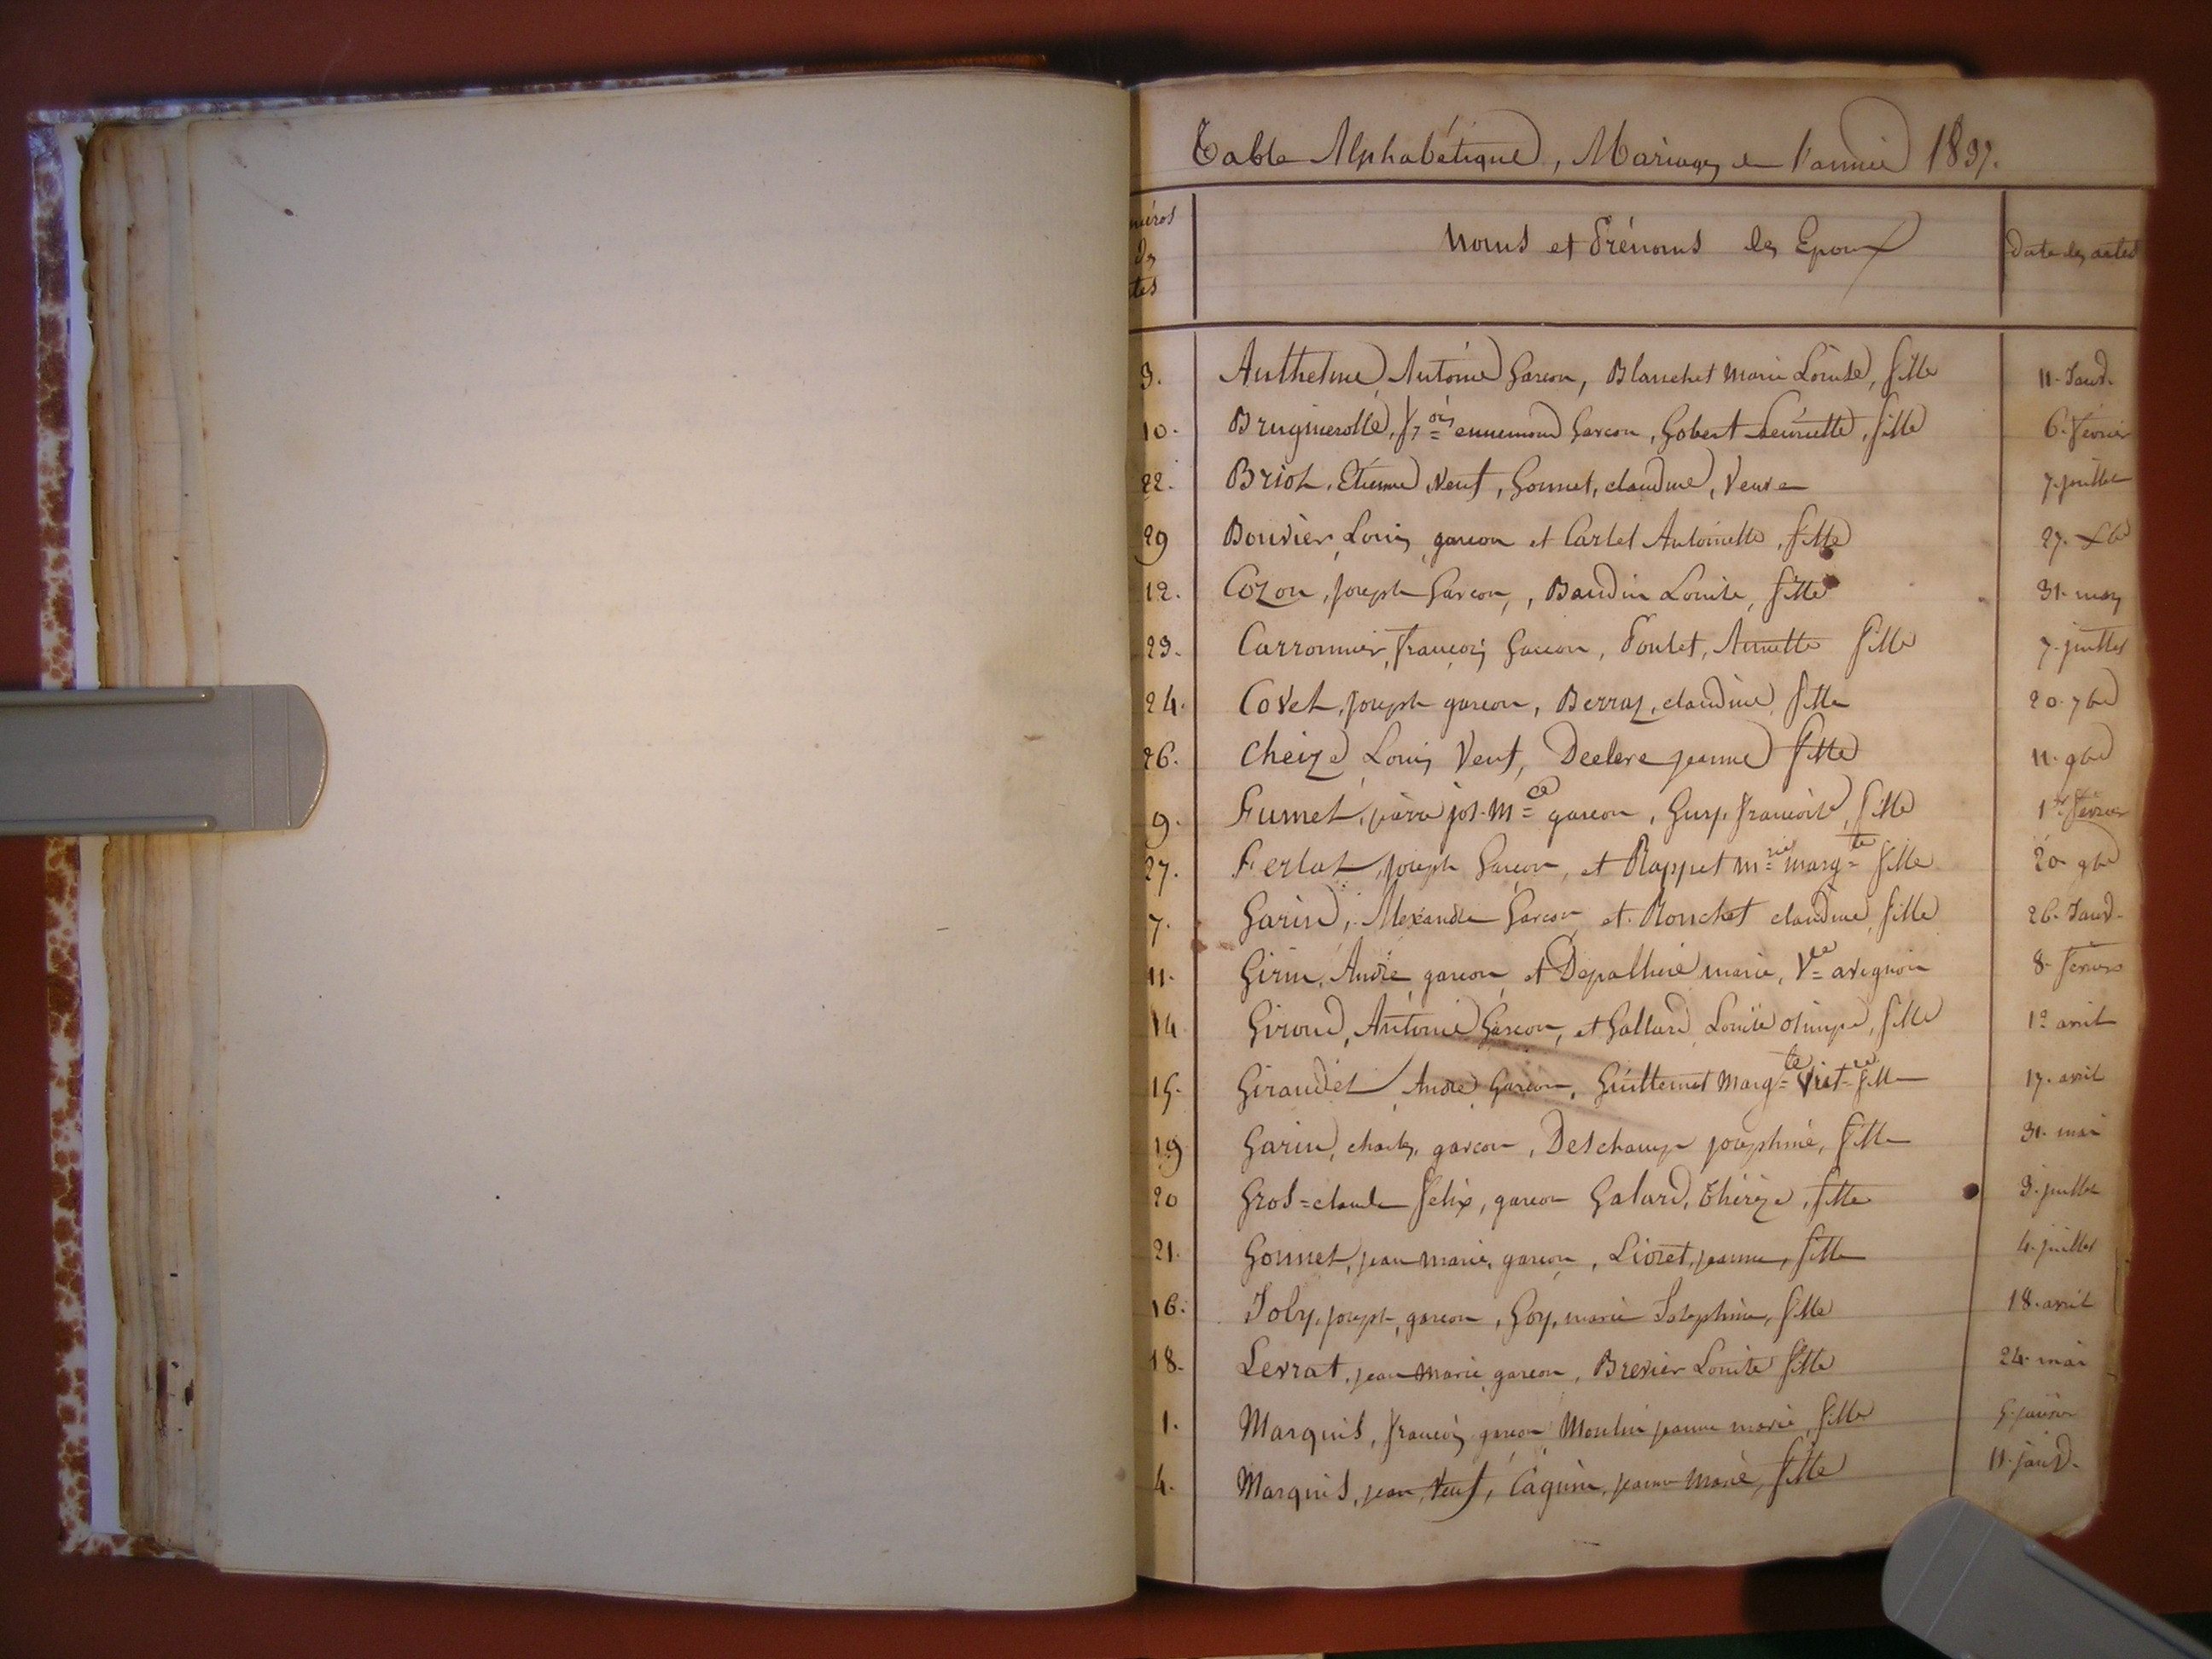 Table Alphabétique, Mariages de l'année 1837.
méros des tes
Noms et Prénoms des Epoux
Date des actes
3. Anthelme, Antoine Garçon, Blanchet Marie Louise, fille 11. Janv.
10. Brugnierolle, fçois ennemond Garçon, Gobert henriette, fille 6. février
22. Briot, Etienne, Veuf, Gonnet, claudine, Veuve 7. juillet
29 Bouvier, Louis, garçon et Cartet Antoinette, fille 27. Xbre
12. Cozon, joseph Garçon, Baudin Louise, fille 31. mars
23. Carronnier, françois Garçon, Poulet, Annette fille 7. juillet
24. Covet, joseph garçon, Berraz, claudine, fille 20. 7bre
26. Cheize Louis Veuf, Declere jeanne fille 11. 9bre
9. Fumet, pierre jos. Mce garçon, Gusp. francoise, fille 1er février
27. Ferlat, joseph Garçon, et Rappet mrie margte fille 20 9bre
7. Garin, Alexandre Garçon, et Ronchet claudine, fille 26. Janv.
11. Girin, André garçon, et Depalliere marie, Vve avignon 8. février
14 Giroud, Antoine Garçon, et Gallard Louise olimpe, fille 1er avril
15. Giraudet, André Garçon, Guillemet Margte Victre fille 17. avril
19 Garin, charles, garçon, Deschamps josephine, fille 31. mai
20 Gros=claude felix, garçon Galard, Thérèze, fille 3. juillet
21. Gonnet, jean marie, garçon, Lioret, jeanne, fille 4. juillet
16. Joly, joseph, garçon, Goy, marie Josephine, fille 18. avril
18. Levrat, jean marie garçon, Brevier Louise fille 24. mai
1. Marquis, françois garçon Moulin jeanne marie, fille 5. janvier
4. Marquis, jean, Veuf, Caguin, jeanne Marie, fille 11. janv.